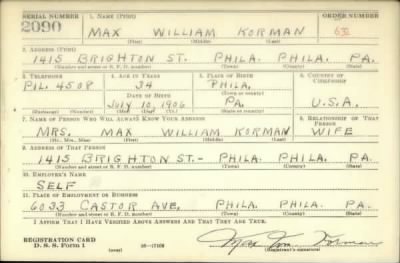 SERIAL NUMBER 1. NAME (Print) ORDER NUMBER
2090 MAX WILLIAM KORMAN 632
(First) (Middle) (Last)
2. ADDRESS (Print)
1415 BRIGHTON ST. PHILA. PHILA. PA.
(Number and street or R. F. D. number) (Town) (County) (State)
3. TELEPHONE 4. AGE IN YEARS 5. PLACE OF BIRTH 6. COUNTRY OF CITIZENSHIP
PIL. 4508 34 PHILA.
DATE OF BIRTH (Town or county)
JULY 10, 1906 PA. U.S.A.
(Exchange) (Number) (Mo.) (Day) (Yr.) (State or country)
7. NAME OF PERSON WHO WILL ALWAYS KNOW YOUR ADDRESS 8. RELATIONSHIP OF THAT PERSON
MRS. MAX WILLIAM KORMAN WIFE
(Mr., Mrs., Miss) (First) (Middle) (Last)
9. ADDRESS OF THAT PERSON
1415 BRIGHTON ST.- PHILA. PHILA. PA.
(Number and street or R. F. D. number) (Town) (County) (State)
10. EMPLOYER'S NAME
SELF
11. PLACE OF EMPLOYMENT OR BUSINESS
6033 CASTOR AVE, PHILA. PHILA. PA.
(Number and street or R. F. D. number) (Town) (County) (State)
I AFFIRM THAT I HAVE VERIFIED ABOVE ANSWERS AND THAT THEY ARE TRUE.
REGISTRATION CARD
D. S. S. Form 1 (over) 16—17105 Max Wm. Korman
(Registrant's signature)